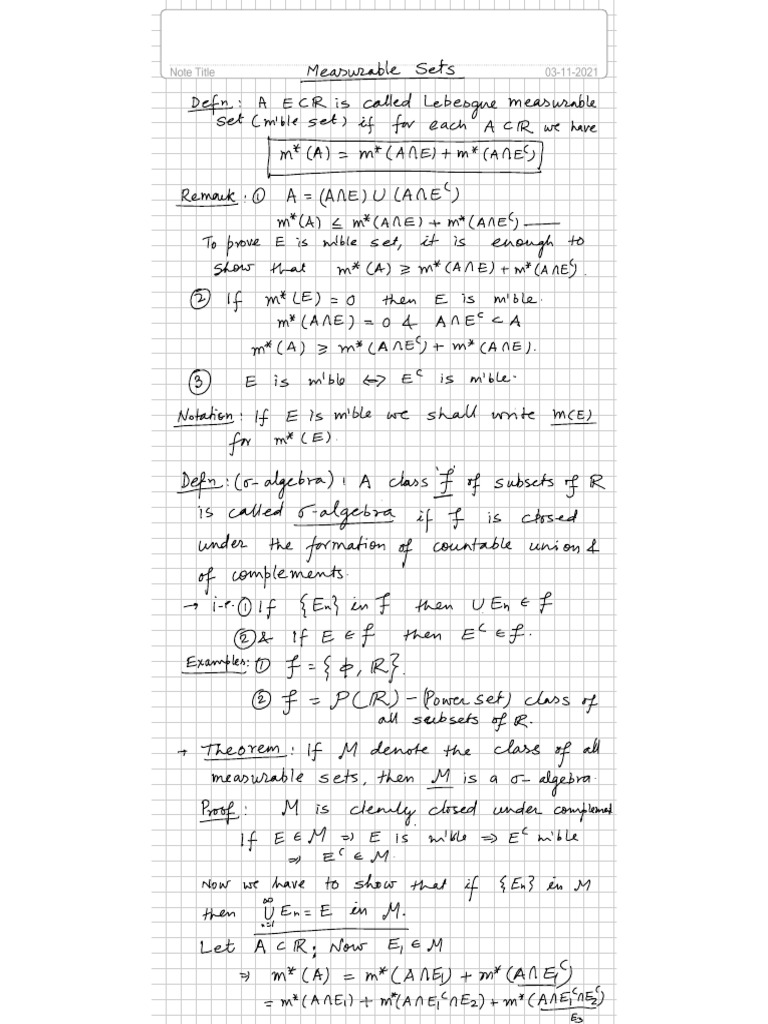 Measurable Sets
Note Title
03-11-2021
Defn: A E⊂ℝ is called Lebesgue measurable
set (m'ble set) if for each A⊂ℝ we have
m*(A) = m*(A∩E) + m*(A∩Eᶜ)
Remark: ① A = (A∩E) ∪ (A∩Eᶜ)
m*(A) ≤ m*(A∩E) + m*(A∩Eᶜ) —
To prove E is m'ble set, it is enough to
show that m*(A) ≥ m*(A∩E) + m*(A∩Eᶜ).
② If m*(E) = 0 then E is m'ble.
m*(A∩E) = 0 & A∩Eᶜ ⊂ A
m*(A) ≥ m*(A∩Eᶜ) + m*(A∩E).
③ E is m'ble ⇔ Eᶜ is m'ble.
Notation: If E is m'ble we shall write m(E)
for m*(E).
Defn: (σ-algebra): A class 'f' of subsets of R
is called σ-algebra if f is closed
under the formation of countable union &
of complements.
→ i.e. ① If {En} in f then ∪En ∈ f
② & If E ∈ f then Eᶜ ∈ f.
Examples: ① f = {ϕ, ℝ}.
② f = P(ℝ) – (Power set) class of
all subsets of R.
→ Theorem: If M denote the class of all
measurable sets, then M is a σ-algebra.
Proof: M is clearly closed under complement
If E ∈ M ⇒ E is m'ble ⇒ Eᶜ m'ble
⇒ Eᶜ ∈ M.
Now we have to show that if {En} in M
then ∞∪n=1 En = E in M.
Let A ⊂ ℝ; Now E₁ ∈ M
⇒ m*(A) = m*(A∩E₁) + m*(A∩E₁ᶜ)
= m*(A∩E₁) + m*(A∩E₁ᶜ∩E₂) + m*(A∩E₁ᶜ∩E₂ᶜ)
E₃